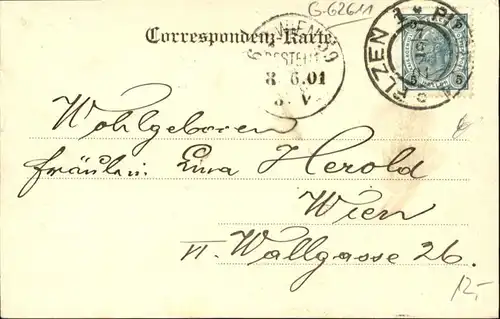 G-62611
Correspondenz-Karte.
WIEN
BESTELLT
8 6.01
8. V
PILZEN 1 * PL
5 5
Wohlgeboren
Fräulein Ema Herold
Wien
VI. Wallgasse 26.
12,-